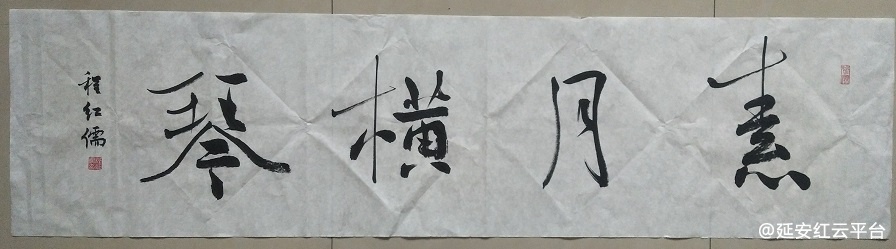 素月横琴
程红儒
@延安红云平台